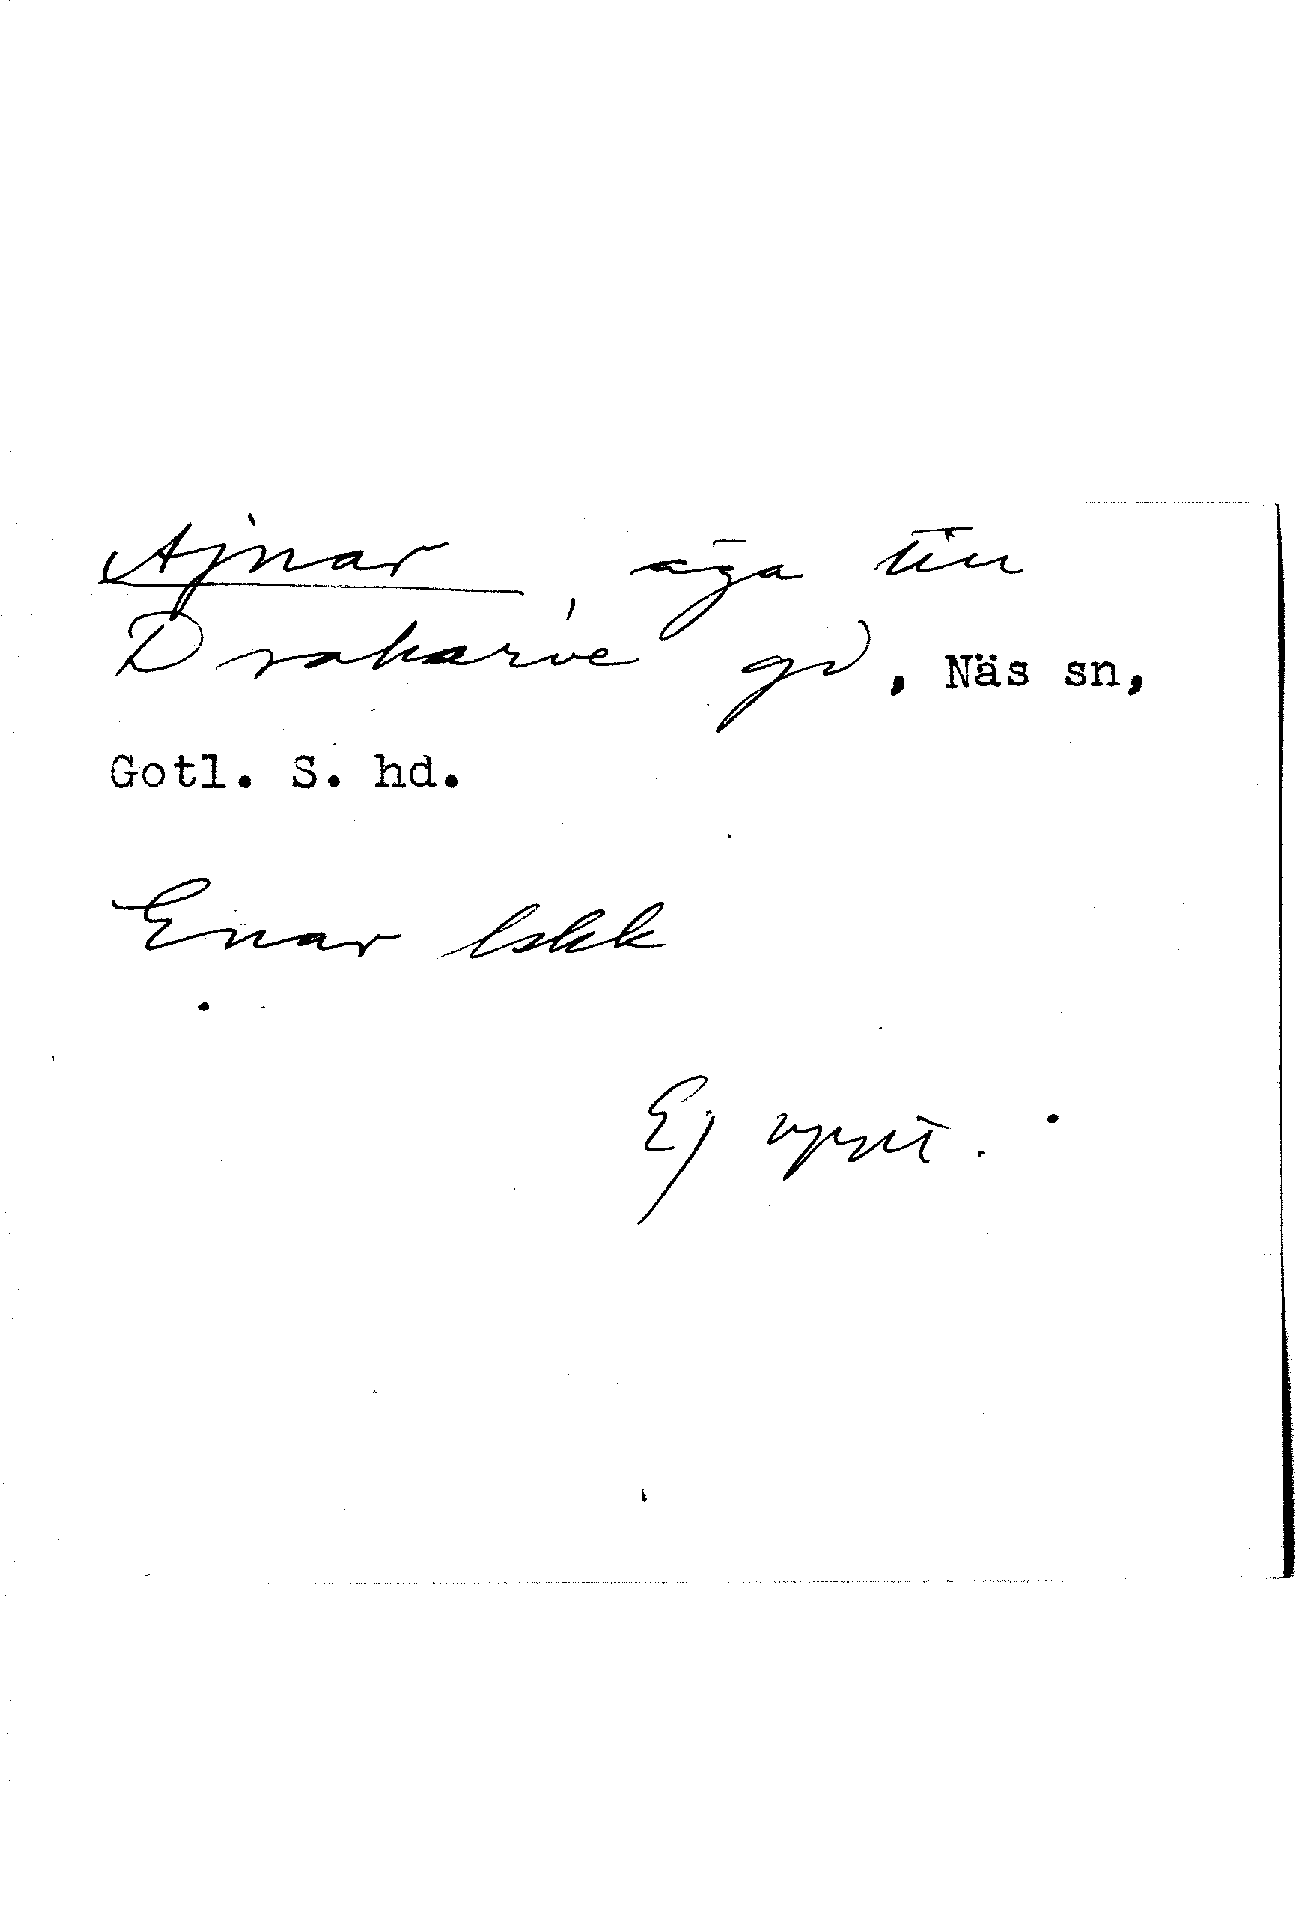 Ajnar, äga till
Drakarve gd, Näs sn,
Gotl. S. hd.
Enar lskk
Ej uppt.